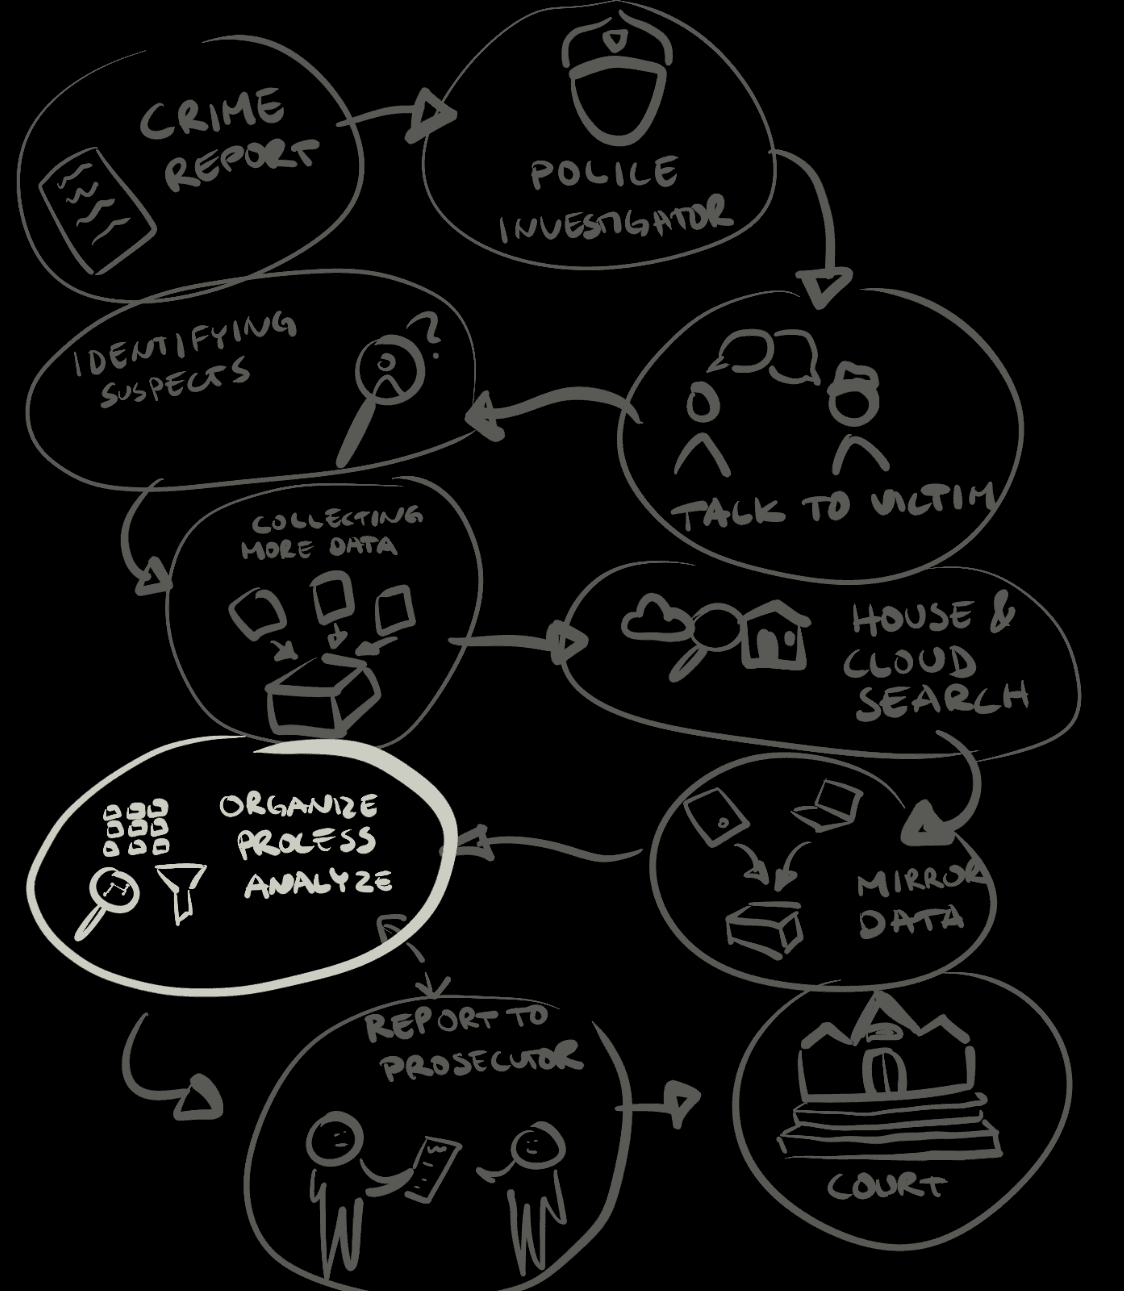 CRIME
REPORT
POLICE
INVESTIGATOR
TALK TO VICTIM
IDENTIFYING
SUSPECTS
?
COLLECTING
MORE DATA
HOUSE &
CLOUD
SEARCH
MIRROR
DATA
ORGANIZE
PROCESS
ANALYZE
REPORT TO
PROSECUTOR
COURT